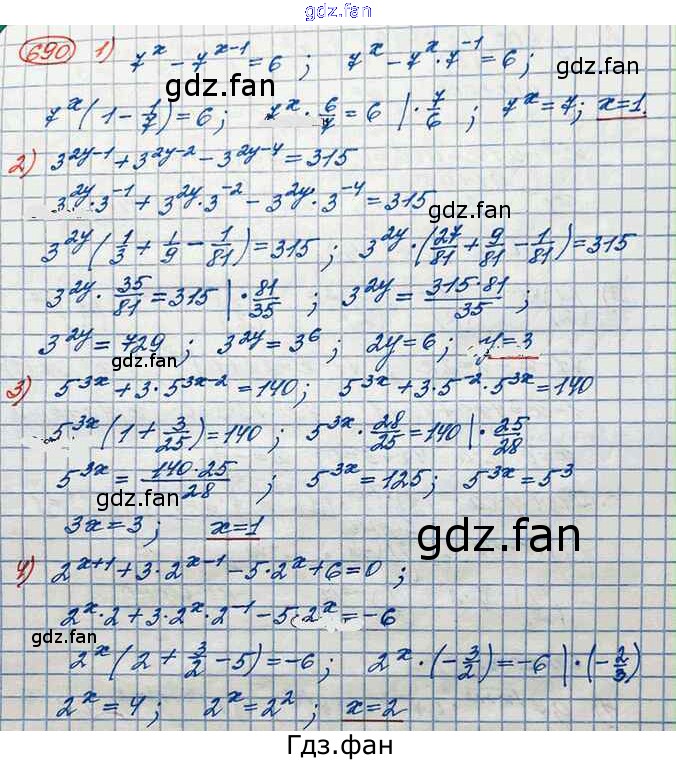 gdz.fan
690 1) 7^x - 7^(x-1) = 6 ; 7^x - 7^x · 7^(-1) = 6 ;
gdz.fan
gdz.fan
7^x (1 - 1/7) = 6 ; 7^x · 6/7 = 6 | · 7/6 ; 7^x = 7 ; x = 1.
2) 3^(2y-1) + 3^(2y-2) - 3^(2y-4) = 315
3^(2y) · 3^(-1) + 3^(2y) · 3^(-2) - 3^(2y) · 3^(-4) = 315
gdz.fan
3^(2y) (1/3 + 1/9 - 1/81) = 315 ; 3^(2y) · (27/81 + 9/81 - 1/81) = 315
3^(2y) · 35/81 = 315 | · 81/35 ; 3^(2y) = 315·81/35 ;
3^(2y) = 729 ; 3^(2y) = 3^6 ; 2y = 6 ; y = 3
gdz.fan
3) 5^(3x) + 3 · 5^(3x-2) = 140 ; 5^(3x) + 3 · 5^(-2) · 5^(3x) = 140
5^(3x) (1 + 3/25) = 140 ; 5^(3x) · 28/25 = 140 | · 25/28
5^(3x) = 140·25/28 ; 5^(3x) = 125 ; 5^(3x) = 5^3
gdz.fan
3x = 3 ; x = 1
gdz.fan
4) 2^(x+1) + 3 · 2^(x-1) - 5 · 2^x + 6 = 0 ;
2^x · 2 + 3 · 2^x · 2^(-1) - 5 · 2^x = -6
gdz.fan
gdz.fan
2^x (2 + 3/2 - 5) = -6 ; 2^x · (-3/2) = -6 | · (-2/3)
2^x = 4 ; 2^x = 2^2 ; x = 2
gdz.fan
Гдз.фан